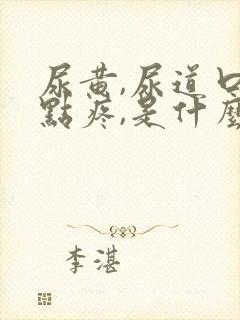 尿黄,尿道口
點疼,是什麼
李湛